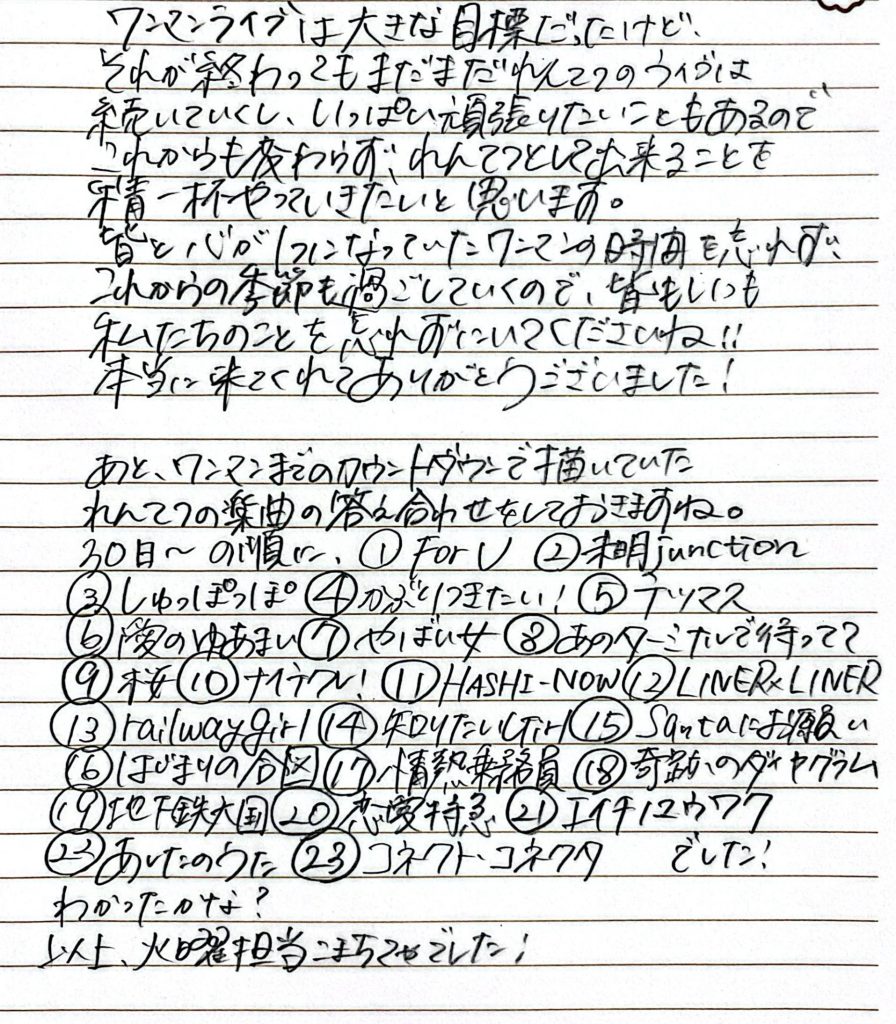 ワンマンライブは大きな目標だったけど、
それが終わってもまだまだれんてつのライブは
続いていくし、いっぱい頑張りたいこともあるので
これからも変わらず、れんてつとして出来ることを
精一杯やっていきたいと思います。
皆と心が1つになっていたワンマンの時間を忘れずに、
これからの季節も過ごしていくので、皆もいつも
私たちのことを忘れずにいてくださいね!!
本当に来てくれてありがとうございました!
あと、ワンマンまでのカウントダウンで描いていた
れんてつの楽曲の答え合わせをしておきますね。
30日〜の順に、① For U ② 未明junction
③ しゅっぽっぽ ④ かぶりつきたい! ⑤ テツマス
⑥ 愛のゆあまい ⑦ やばい女 ⑧ あのターミナルで待ってて
⑨ 桜 ⑩ ナイテクレ! ⑪ HASHI-NOW ⑫ LINER×LINER
⑬ railway girl ⑭ 知りたいGirl ⑮ Santaにお願い
⑯ はじまりの合図 ⑰ 情熱乗務員 ⑱ 奇跡のダイヤグラム
⑲ 地下鉄大国 ⑳ 恋愛特急 ㉑ エイチノユウワク
㉒ あしたのうた ㉓ コネクト・コネクタ でした!
わかったかな?
以上、火曜担当こまちでした!